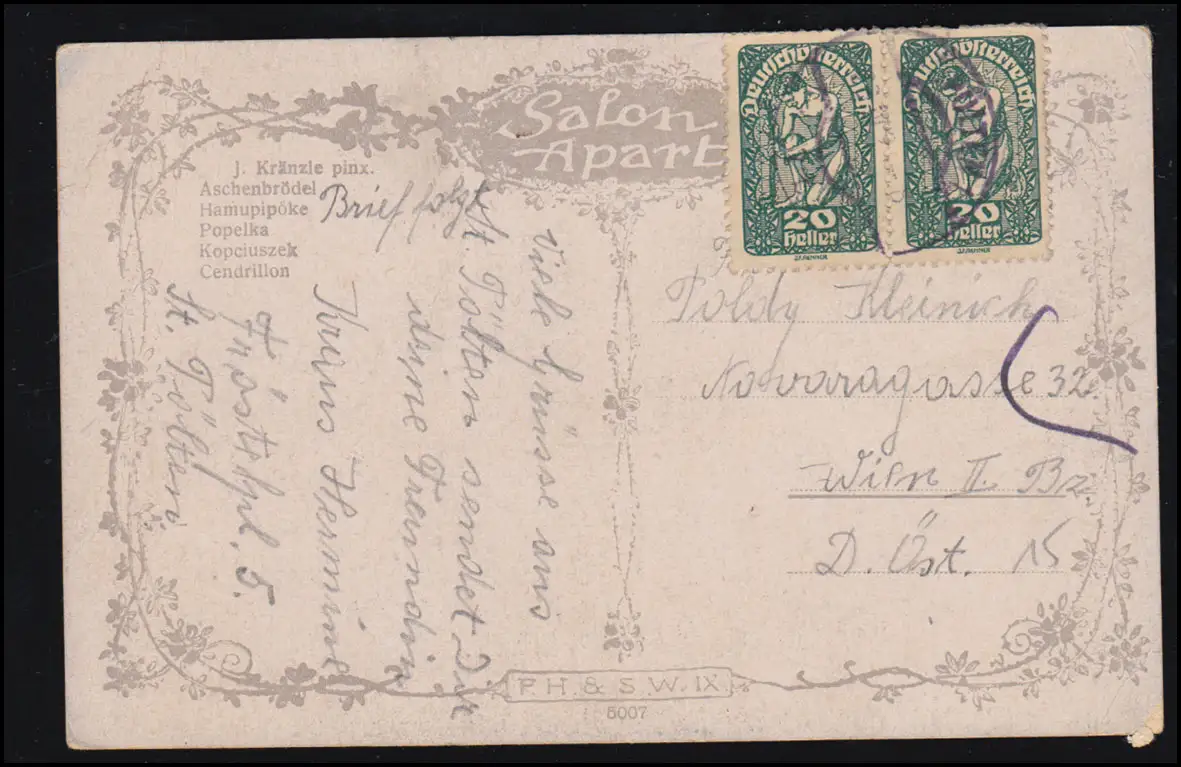 Salon
Apart
J. Kränzle pinx.
Aschenbrödel
Hamupipőke
Popelka
Kopciuszek
Cendrillon
Brief folgt
Viele Grüsse aus
St. Pölten sendet Dir
deine Freundin
Kraus Hermine
Fröstlpl. 5.
St. Pölten
Deutschösterreich
20
Heller
Deutschösterreich
20
Heller
Poldy Kleinich
Novaragasse 32.
Wien II. Bz.
D. Öst.
P. H. & S. W. IX
5007